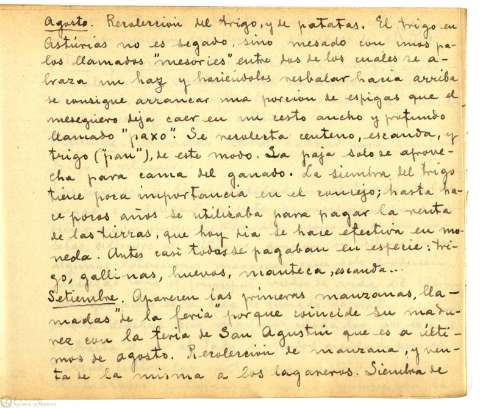 Agosto. Recolección del trigo, y de patatas. El trigo en
Asturias no es segado, sino mesado con unos pa-
los llamados "mesories" entre dos de los cuales se a-
braza un haz y haciendolos resbalar hacia arriba
se consigue arrancar una porción de espigas que el
meseguero deja caer en un cesto ancho y profundo
llamado "paxo". Se recolesta centeno, escanda, y
trigo ("pan"), de este modo. La paja solo se aprove-
cha para cama del ganado. La siembra del trigo
tiene poca importancia en el concejo; hasta ha-
ce pocos años se utilizaba para pagar la renta
de las tierras, que hoy dia se hace efectiva en mo-
neda. Antes casi todas se pagaban en especie: tri-
go, gallinas, huevos, manteca, escanda...
Setiembre. Aparecen las primeras manzanas, lla-
madas "de la feria" porque coincide su madu-
rez con la feria de San Agustin que es a últi-
mos de agosto. Recolección de manzana, y ven-
ta de la misma a los lagareros. Siembra de